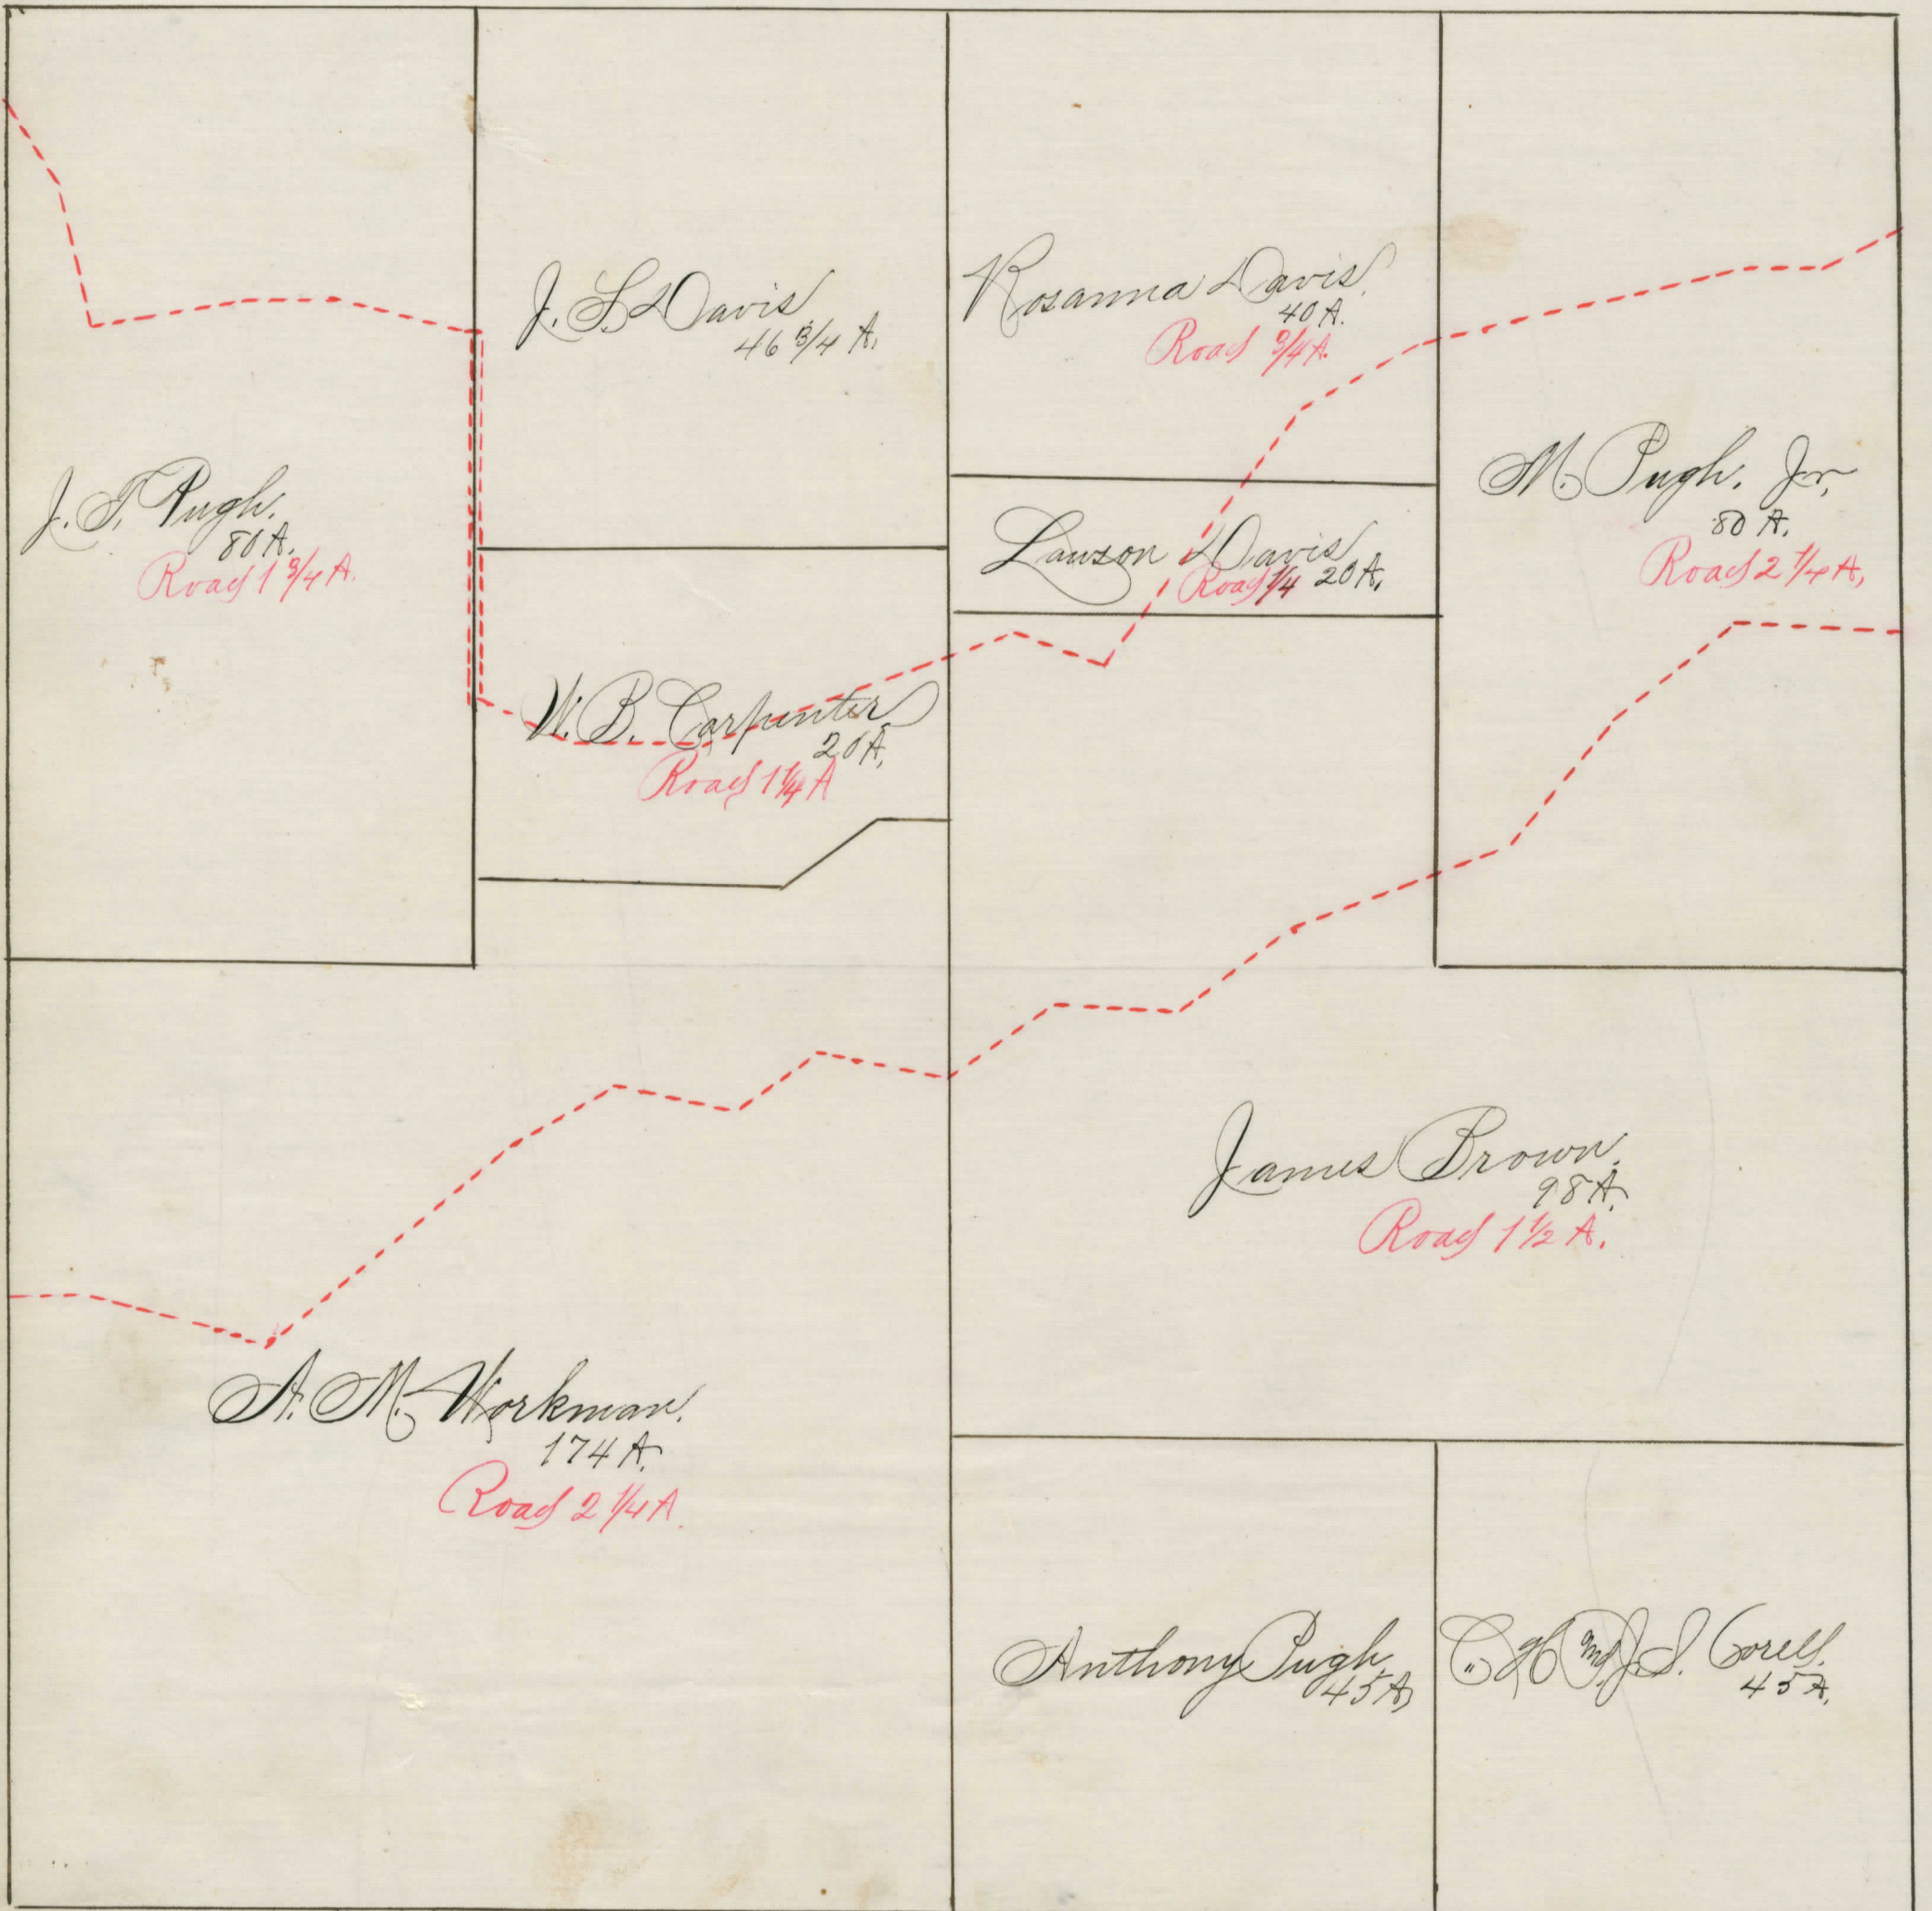 J. L. Davis
46 3/4 A.
Rosanna Davis.
40 A.
Road 3/4 A.
J. T. Pugh.
80 A.
Road 1 3/4 A.
M. Pugh. Jr.
80 A.
Road 2 1/4 A.
Lawson Davis
Road 1/4 20 A.
W. B. Carpenter
20 A.
Road 1 1/4 A
James Brown.
98 A.
Road 1 1/2 A.
A. M. Workman.
174 A.
Road 2 1/4 A.
Anthony Pugh
45 A.
C. H. and J. S. Corell.
45 A.